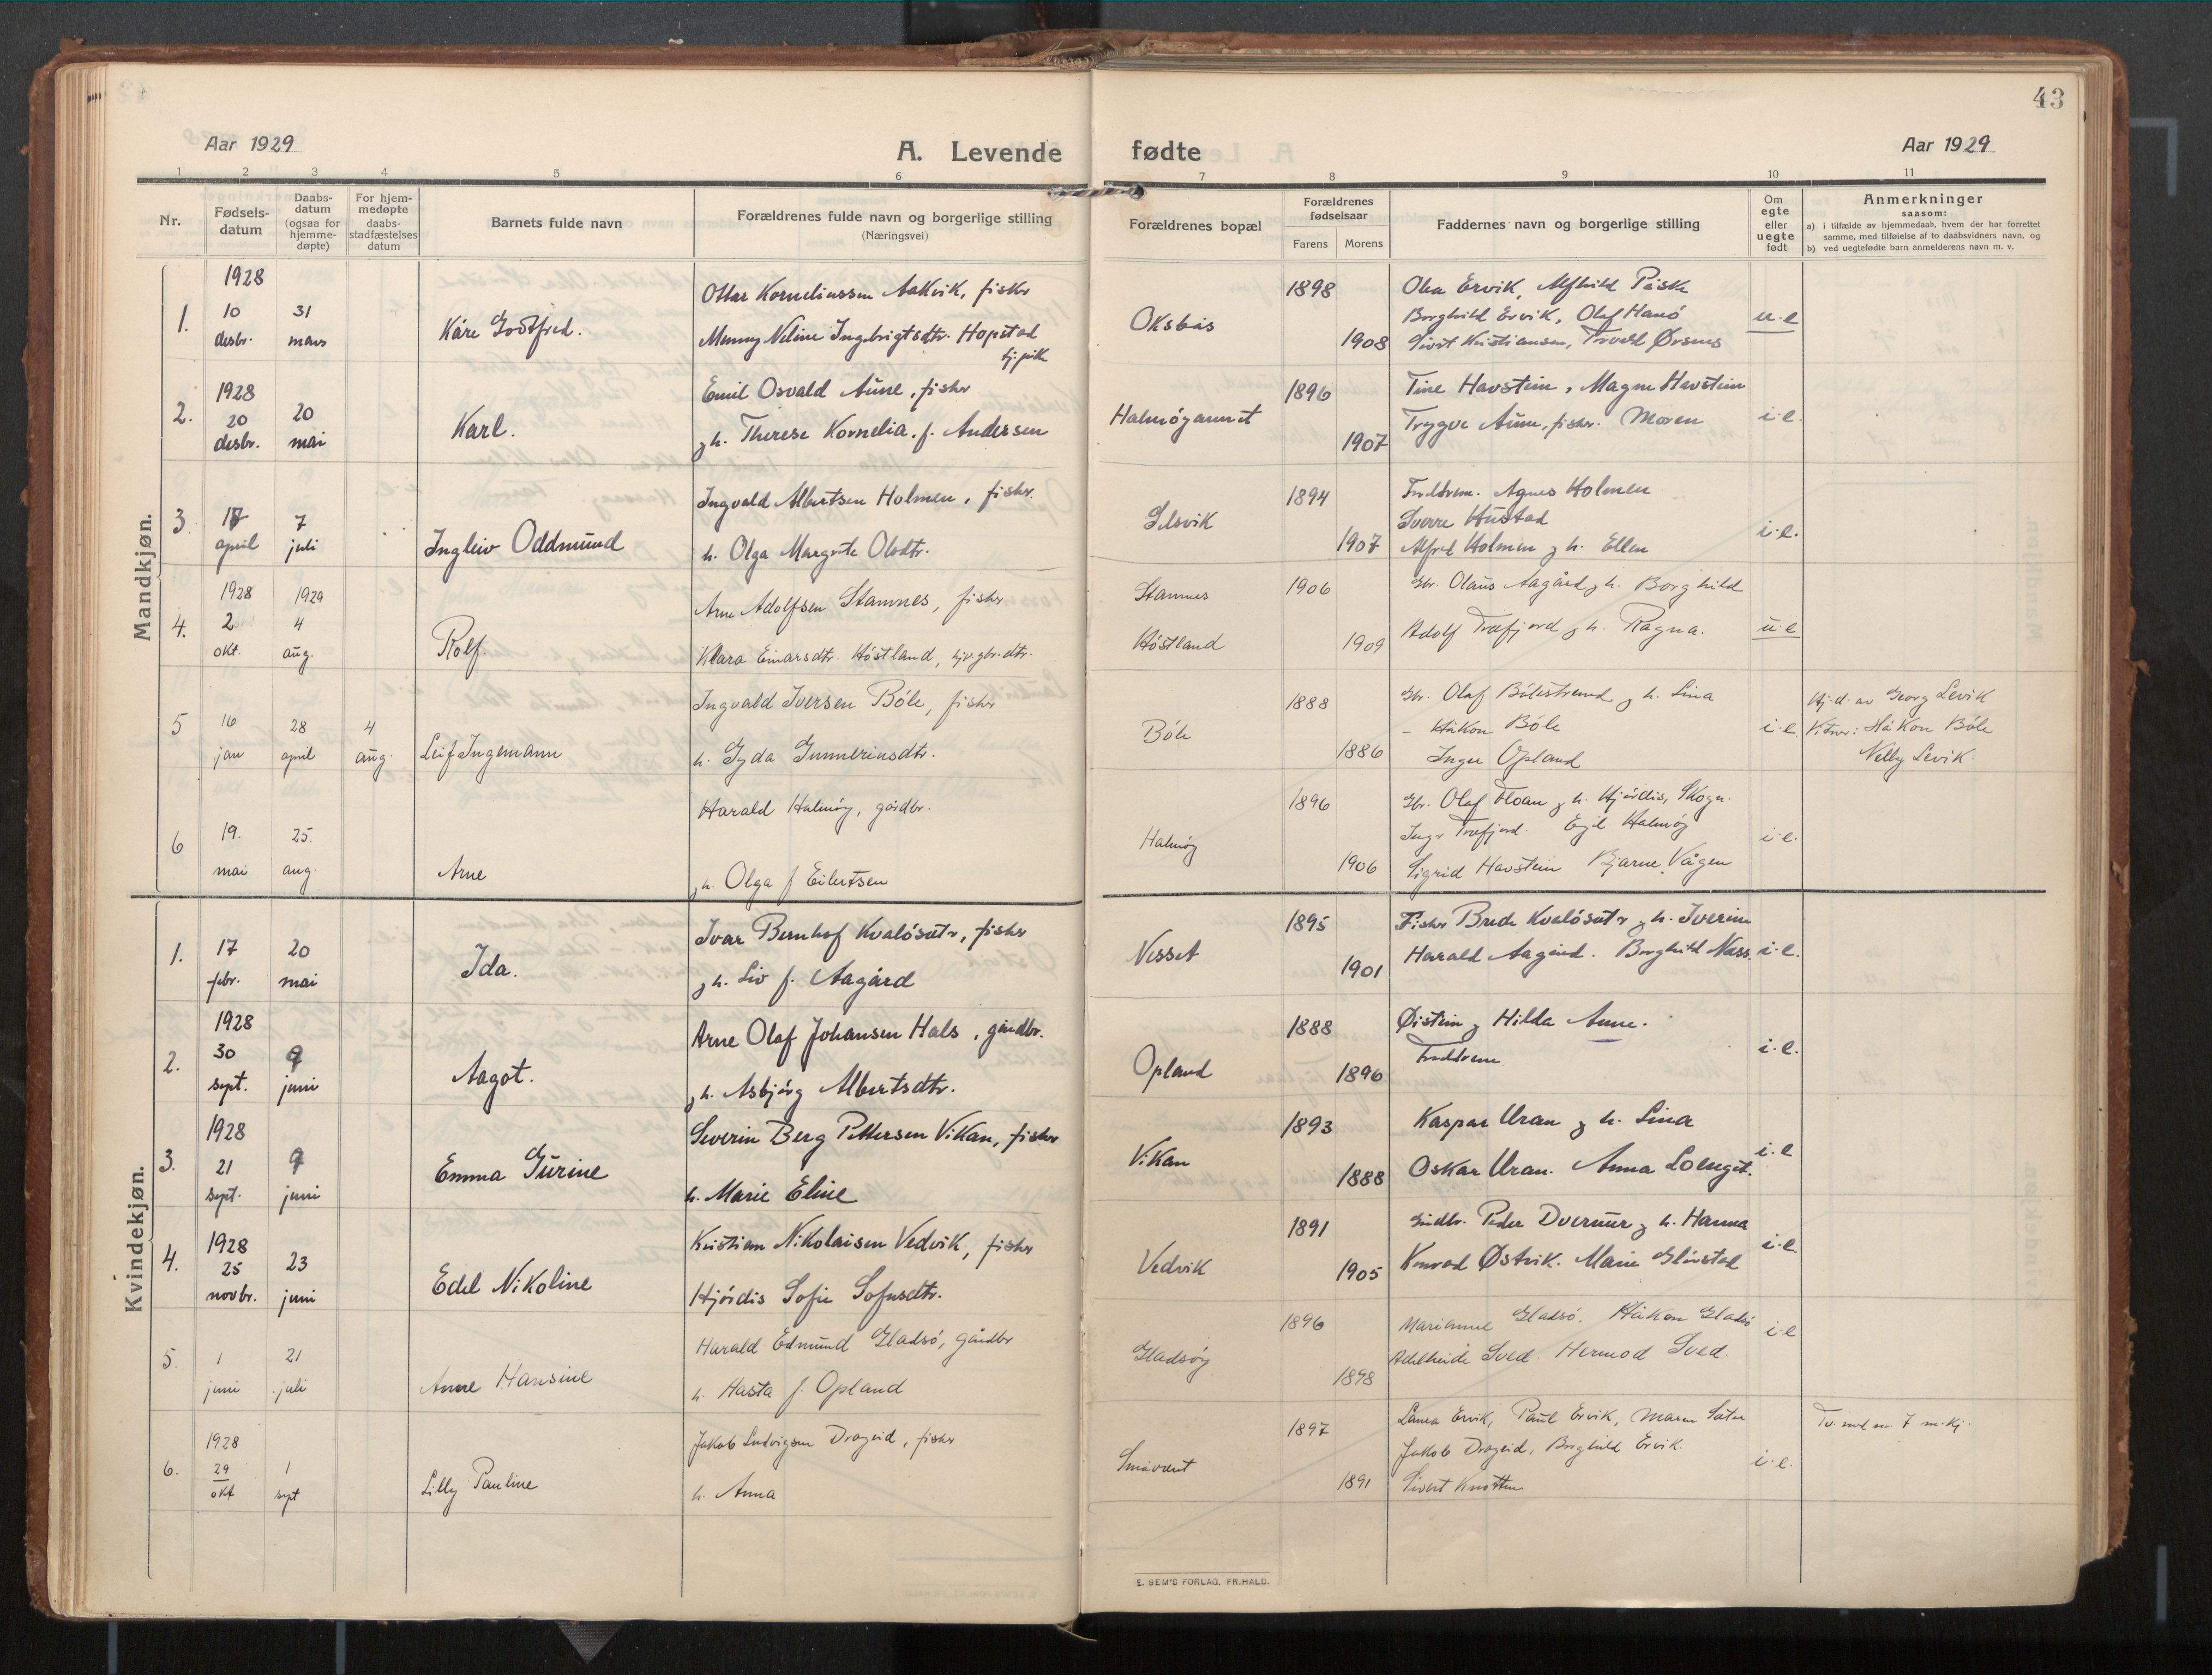 43
Aar 1929
A. Levende fødte
Aar 1929
1 2 3 4 5 6 7 8 9 10 11
Nr.
Fødsels-
datum
Daabs-
datum
(ogsaa for
hjemme-
døpte)
For hjem-
medøpte
daabs-
stadfæstelses
datum
Barnets fulde navn
Forældrenes fulde navn og borgerlige stilling
(Næringsvei)
Forældrenes bopæl
Forældrenes
fødselsaar
Farens Morens
Faddernes navn og borgerlige stilling
Om
egte
eller
uegte
født
Anmerkninger
saasom:
a) i tilfælde av hjemmedaab, hvem der har forrettet
samme, med tilføielse af to daabsvidners navn, og
b) ved uegtefødte barn anmelderens navn m. v.
Mandkjøn.
1.
1928
10 desbr.
31 mars
Kåre Godtfred.
Ottar Korneliussen Aakvik, fisker
Menny Neline Ingebrigtsdtr. Hopstad
tj.pike
Oksbås
1898
1908
Olea Ervik, Alfhild Påske
Borghild Ervik, Olaf Hanö
Sivert Kristiansen, Truels Ørsnes
u.e
2.
1928
20 desbr.
20 mai
Karl.
Emil Osvald Aune, fisker
og h. Therese Kornelia. f. Andersen
Halmöyaunet
1896
1907
Tine Havstein, Magne Havstein
Trygve Aune, fisker. Moren
i.e.
3
17 april
7 juli
Ingleiv Oddmund
Ingvald Albertsen Holmen, fisker.
h. Olga Margrete Olsdtr.
Selsvik
1894
1907
Foreldrene. Agnes Holmen
Sverre Hustad
Alfred Holmen og h. Ellen
i.e.
4.
1928
2 okt.
1929
4 aug.
Rolf
Arne Adolfsen Stamnes, fisker
Klara Einarsdtr. Höstland, hjv.gbr.dtr.
Stamnes
Höstland
1906
1909
Gbr. Olaus Aagård og h. Borghild
Adolf Træfjord og h. Ragna.
u.e
5
16 jan
28 april
4 aug.
Leif Ingemann
Ingvald Iversen Böle, fisker
h. Gyda Gunneriusdtr.
Böle
1888
1886
Gbr. Olaf Bölestrand og h. Lina
– Håkon Böle
Inger Opland
i.e.
Hj.d. av Georg Levik
Vitner: Håkon Böle
Nelly Levik.
6
19. mai
25. aug.
Arne
Harald Halmöy, gårdbr.
og h. Olga f Eilertsen
Halmöy
1896
1906
Gbr. Olaf Floan og h. Hjördis, Skogn.
Inger Træfjord. Egil Halmöy
Sigrid Havstein Bjarne Vågen
i.e.
Kvindekjøn.
1.
17 febr.
20 mai
Ida.
Ivar Bernhof Kvalösæter, fisker
og h. Liv f. Aagård
Nesset
1895
1901
Fisker Brede Kvalösæter og h. Iverine
Harald Aagård. Borghild Næss.
i.e.
2.
1928
30 sept.
9 juni
Aagot.
Arne Olaf Johansen Hals, gårdbr.
og h. Asbjörg Albertsdtr.
Opland
1888
1896
Øistein og Hilda Aune.
Foreldrene
i.e.
3.
1928
21 sept.
9 juni
Emma Gurine
Severin Berg Pettersen Vikan, fisker
h. Marie Eline
Vikan
1893
1888
Kaspar Uran og h. Lina
Oskar Uran. Anna
i.e
4.
1928
25 novbr.
23 juni
Edel Nikoline
Kristian Nikolaisen Vedvik, fisker
Hjördis Sofie Sofusdtr.
Vedvik
1891
1905
Gårdbr. Peder Duemur og h. Hanna
Konrad Østvik. Marie
i.e.
5.
1 juni
21 juli
Anne Hansine
Harald Edmund Gladsö, gårdbr
h. Aasta f. Opland
Gladsöy
1896
1898
Marianne Gladsö. Håkon Gladsö
Adelheide Sved. Hermod Sved.
i.e
6.
1928
29 okt
1 sept
Lilly Pauline
Jakob Ludvigsen Drageid, fisker
h. Anna
Småværet
1897
1891
Laura Ervik, Paul Ervik, Maren Sæter
Jakob Drageid, Borghild Ervik.
Sivert Knotten
i.e.
Tv. med nr 7 m.kj.
E. SEM'S FORLAG, FR:HALD.